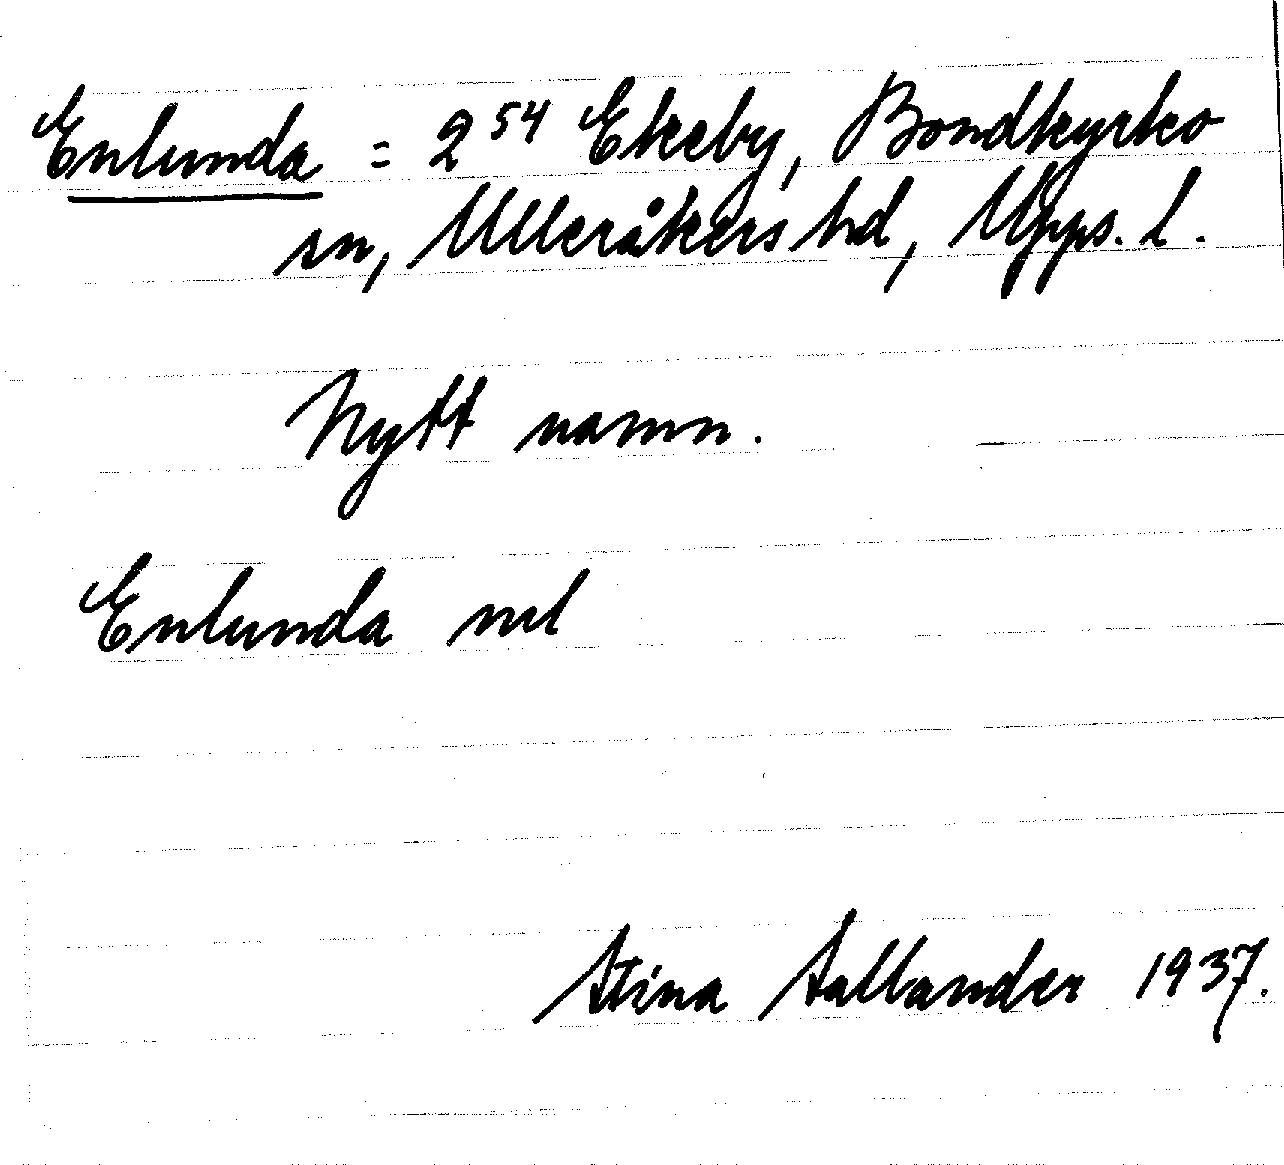 Enlunda = 2⁵⁴ Ekeby, Bondkyrko
sn, Ulleråkers hd, Upps. l.
Nytt namn.
Enlunda
Stina Sallander 1937.